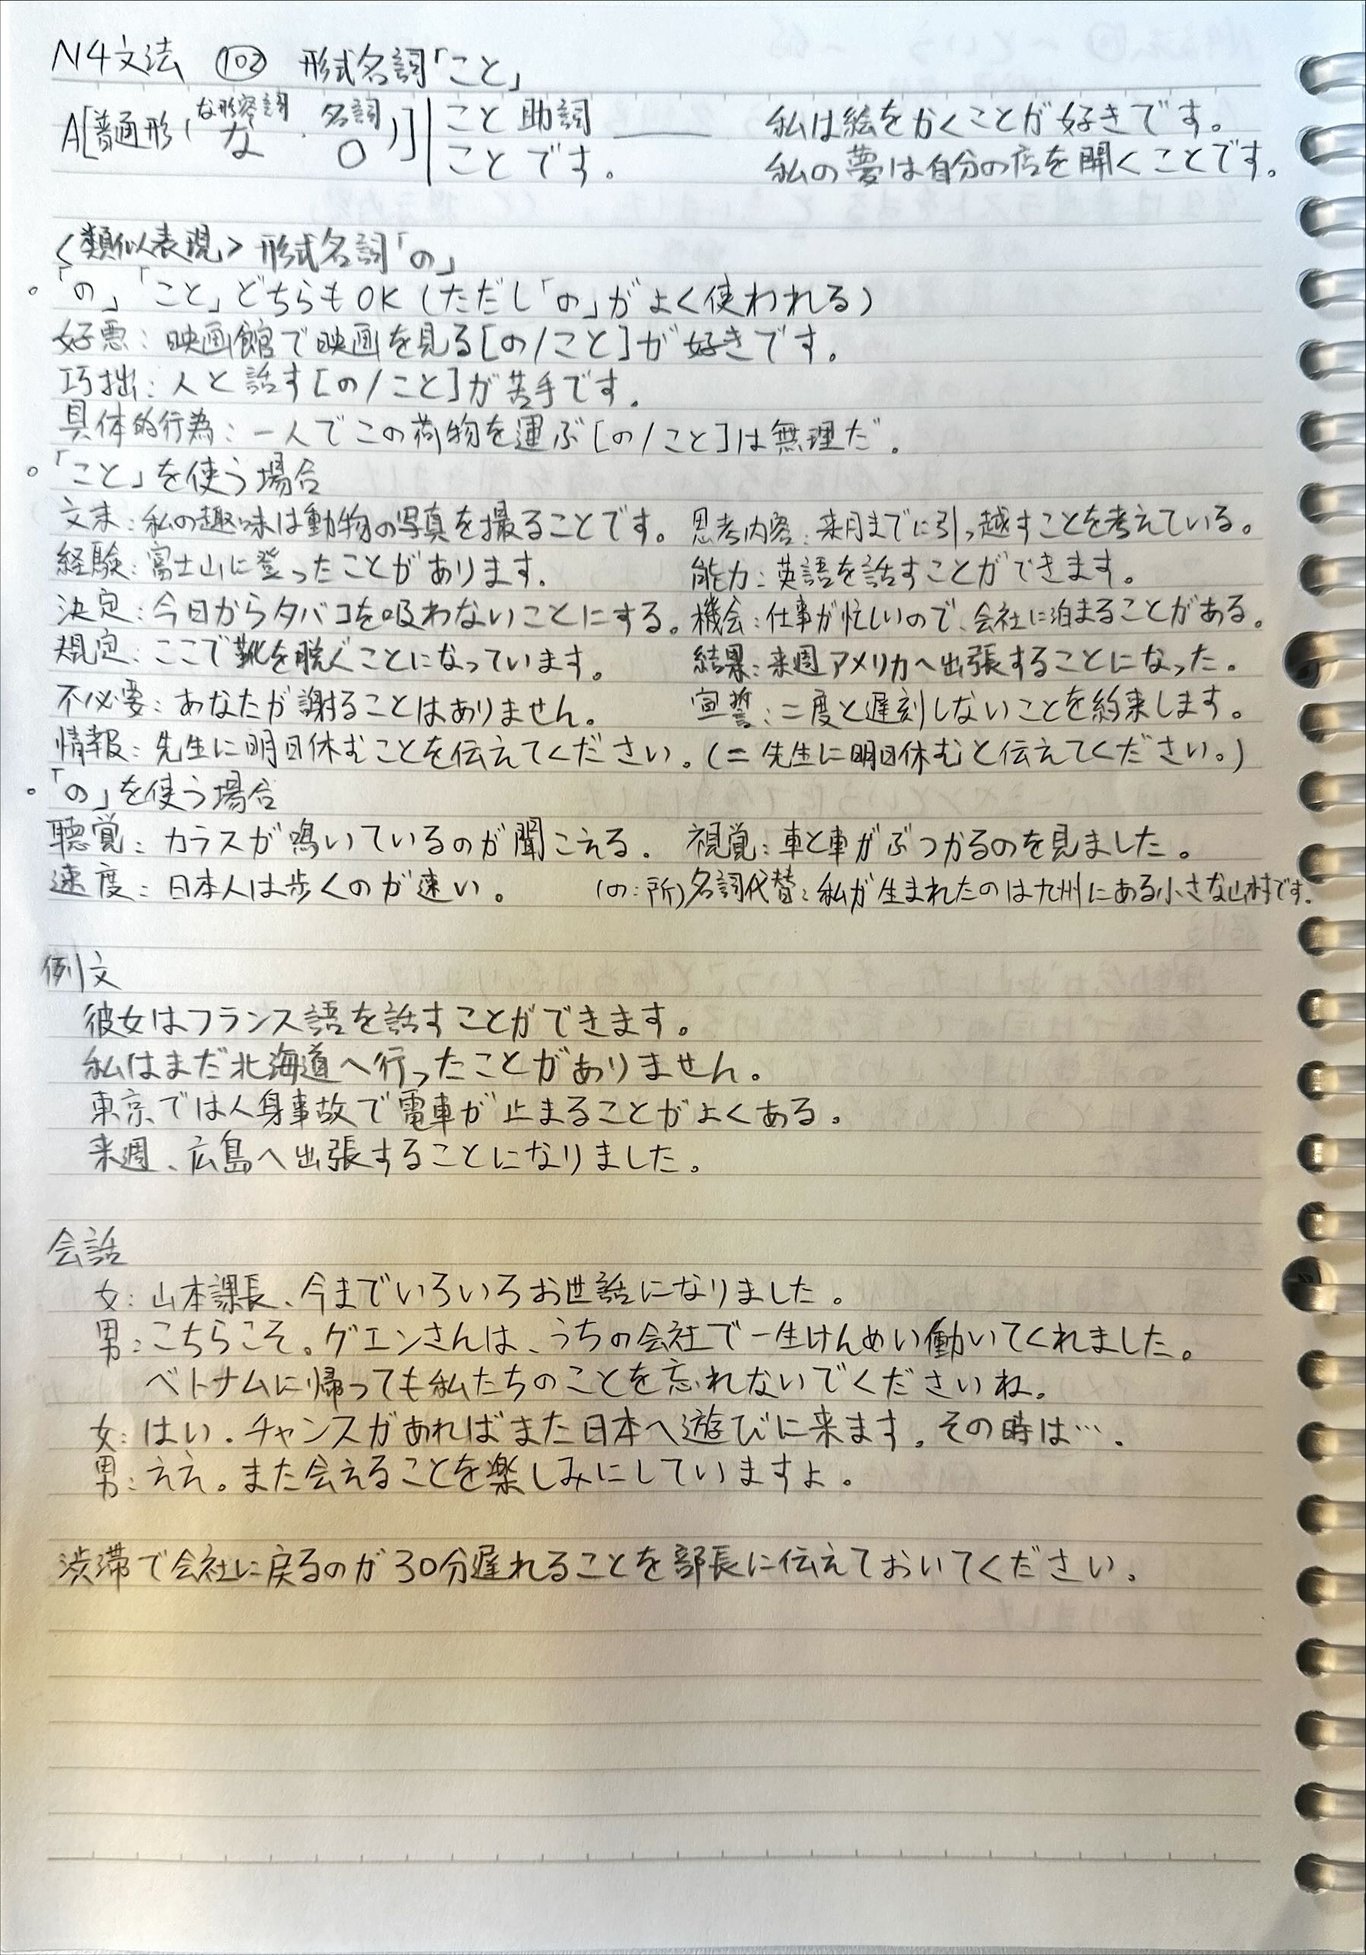 N4文法 102 形式名詞「こと」
A[普通形(な形容詞 な・名詞 〇)] こと 助詞 ―― 私は絵をかくことが好きです。
ことです。 私の夢は自分の店を開くことです。
<類似表現> 形式名詞「の」
。「の」「こと」どちらもOK(ただし「の」がよく使われる)
好悪:映画館で映画を見る[の/こと]が好きです。
巧拙:人と話す[の/こと]が苦手です。
具体的行為:一人でこの荷物を運ぶ[の/こと]は無理だ。
。「こと」を使う場合
文末:私の趣味は動物の写真を撮ることです。 思考内容:来月までに引っ越すことを考えている。
経験:富士山に登ったことがあります。 能力:英語を話すことができます。
決定:今日からタバコを吸わないことにする。 機会:仕事が忙しいので、会社に泊まることがある。
規定:ここで靴を脱ぐことになっています。 結果:来週アメリカへ出張することになった。
不必要:あなたが謝ることはありません。 宣誓:二度と遅刻しないことを約束します。
情報:先生に明日休むことを伝えてください。(=先生に明日休むと伝えてください。)
。「の」を使う場合
聴覚:カラスが鳴いているのが聞こえる。 視覚:車と車がぶつかるのを見ました。
速度:日本人は歩くのが速い。 (の:所)名詞代替:私が生まれたのは九州にある小さな山村です。
例文
彼女はフランス語を話すことができます。
私はまだ北海道へ行ったことがありません。
東京では人身事故で電車が止まることがよくある。
来週、広島へ出張することになりました。
会話
女:山本課長、今までいろいろお世話になりました。
男:こちらこそ。グエンさんは、うちの会社で一生けんめい働いてくれました。
ベトナムに帰っても私たちのことを忘れないでくださいね。
女:はい。チャンスがあればまた日本へ遊びに来ます。その時は…。
男:ええ。また会えることを楽しみにしていますよ。
渋滞で会社に戻るのが30分遅れることを部長に伝えておいてください。